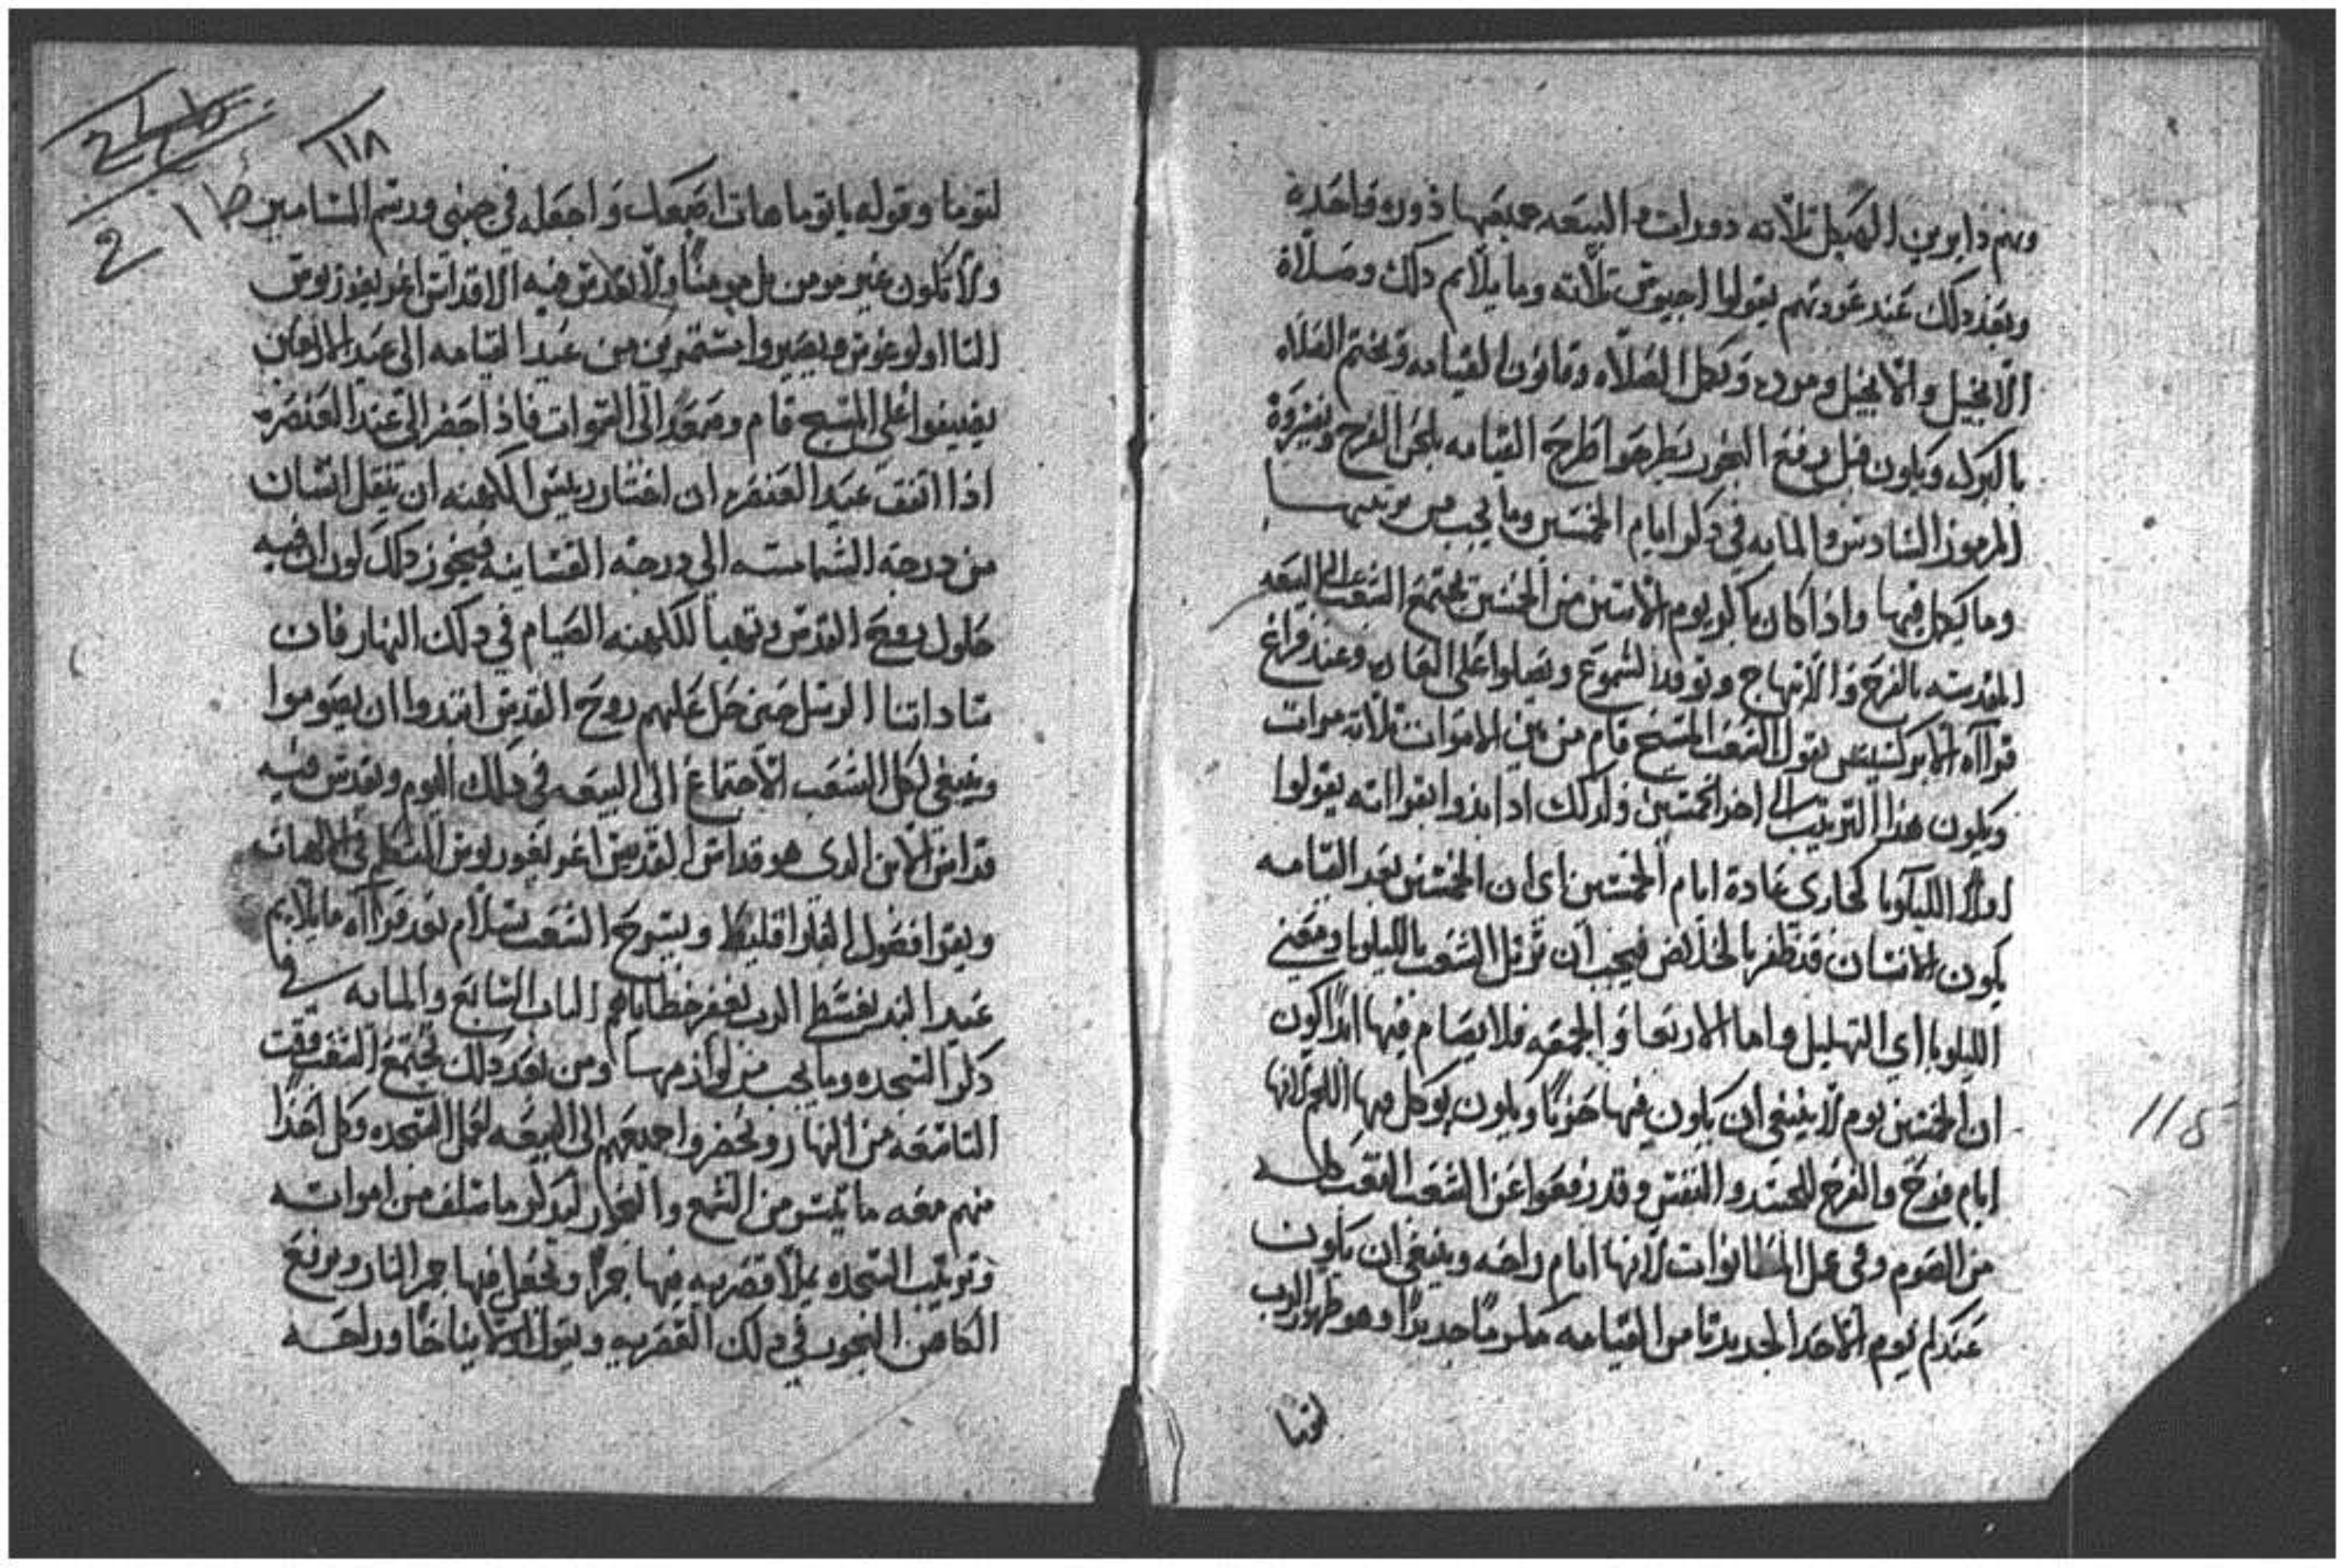 وهم دايرين الهيكل ثلاثه دورات و البيعه جميعها دوره واحدة
وبعد ذلك عند عودتهم يقولوا اجيوس ثلاثه وما يلايم ذلك وصلاة
الانجيل والانجيل ومرده وتكمل الصلاه وقانون القيامه وتختم الصلاه
بالبركه ويكون قبل رفع البخور يطرحوا طرح القيامه بلحن الفرح
السادس والمايه في ذكر ايام الخمسين وما يجب من ترتيبها
وما يكمل فيها واذا كان باكر يوم الاثنين من الخمسين تجتمع الشعب الى البيعه
المقدسه بالفرح والابتهاج وتوقد الشموع ويصلوا على العاده وعند فراغ
قراآه الابركسيس يقول الشعب المسيح قام من بين الاموات ثلاثه مرات
ويكون هذا الترتيب الى اخر الخمسين وكذلك اذا بدوا بقرااته يقولوا
اولا الليلويا كجاري عادة ايام الخمسين اي ان الخمسين بعد القيامه
يكون الانسان قد ظفر بالخلاص فيجب ان ترتل الشعب بالليلويا ومعني
الليلويا اي التهليل واما الاربعا والجمعه فلا يصام فيها ابدا كون
ان الخمسين يوم لا ينبغي ان يكون فيها حزنا ويكون يوكل فيها اللحم لانها
ايام فرح والفرح للجسد والنفس وقد رفعوا عن الشعب التعب
من الصوم وفي عمل المطانوات لانها ايام راحه وينبغي ان يكون
عندكم يوم الاحد الجديد تامن القيامه مكرما جديدا وهو ظهور الرب
لتوما
١١٨
لتوما وقوله يا توما هات اصبعك واجعله في جنبي ورسم المسامير
ولا تكون غير مومن بل مومنا ولا تقدس فيه الا قداس اغريغوريوس
التااولوغوس ويصيروا مستمرين من عيد القيامه الى عيد
يضيفوا على المسيح قام وصعد الى السموات فاذا حضر الى عيد العنصره
اذا اتفق عيد العنصره ان اختار رييس الكهنه ان ينقل انسان
من درجة الشماسه الى درجة القساينه فيجوز ذلك لون ان فيه
حلول روح القدس وتهيا للكهنه الصيام في ذلك النهار فان
ساداتنا الرسل حين حل عليهم روح القدس ابتدوا ان يصوموا
وينبغي لكل الشعب الاجتماع الى البيعه في ذلك اليوم ويقدس فيه
قداس الابن الدي هو قداس القديس اغريغوريوس المتكلم في الالهات
ويقرا فصول الفارقليط ويسرح الشعب بسلام بعد قراآه ما يلايم
عيد البنديقسطي الرب يغفر خطاياهم الباب السابع والمايه في
ذكر السجده وما يجب من لوازمها ومن بعد ذلك تجتمع الشعب وقت
التاسعه من النهار وتحضروا جميعهم الى البيعه لعمل السجده وكل احدا
منهم معه ما تيسر من الشمع والبخور ليذكر ما سلف من امواته
وترتيب السجده يملا قصريه فيها جمرا وتجعل فيها جمر النار ويرفع
الكاهن البخور في ذلك القصريه ويقول لابينا نياحا وراحه
115